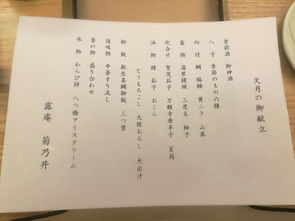 文月の御献立
食前酒 御神酒
八寸 季節のもの六種
向付 鯛 縞鯵 黄ニラ 山葵
蓋物 湯葉饅頭 三度豆 柚子
炊合せ 賀茂茄子 万願寺唐辛子 茗荷
油物 鱧 茄子 おくら
とうもろこし 大根おろし 大出汁
御飯 新生姜鯛御飯 三つ葉
後吸物 牛蒡すり流し
香の物 盛り合わせ
水物 わらび餅 八つ橋アイスクリーム
露庵 菊乃井